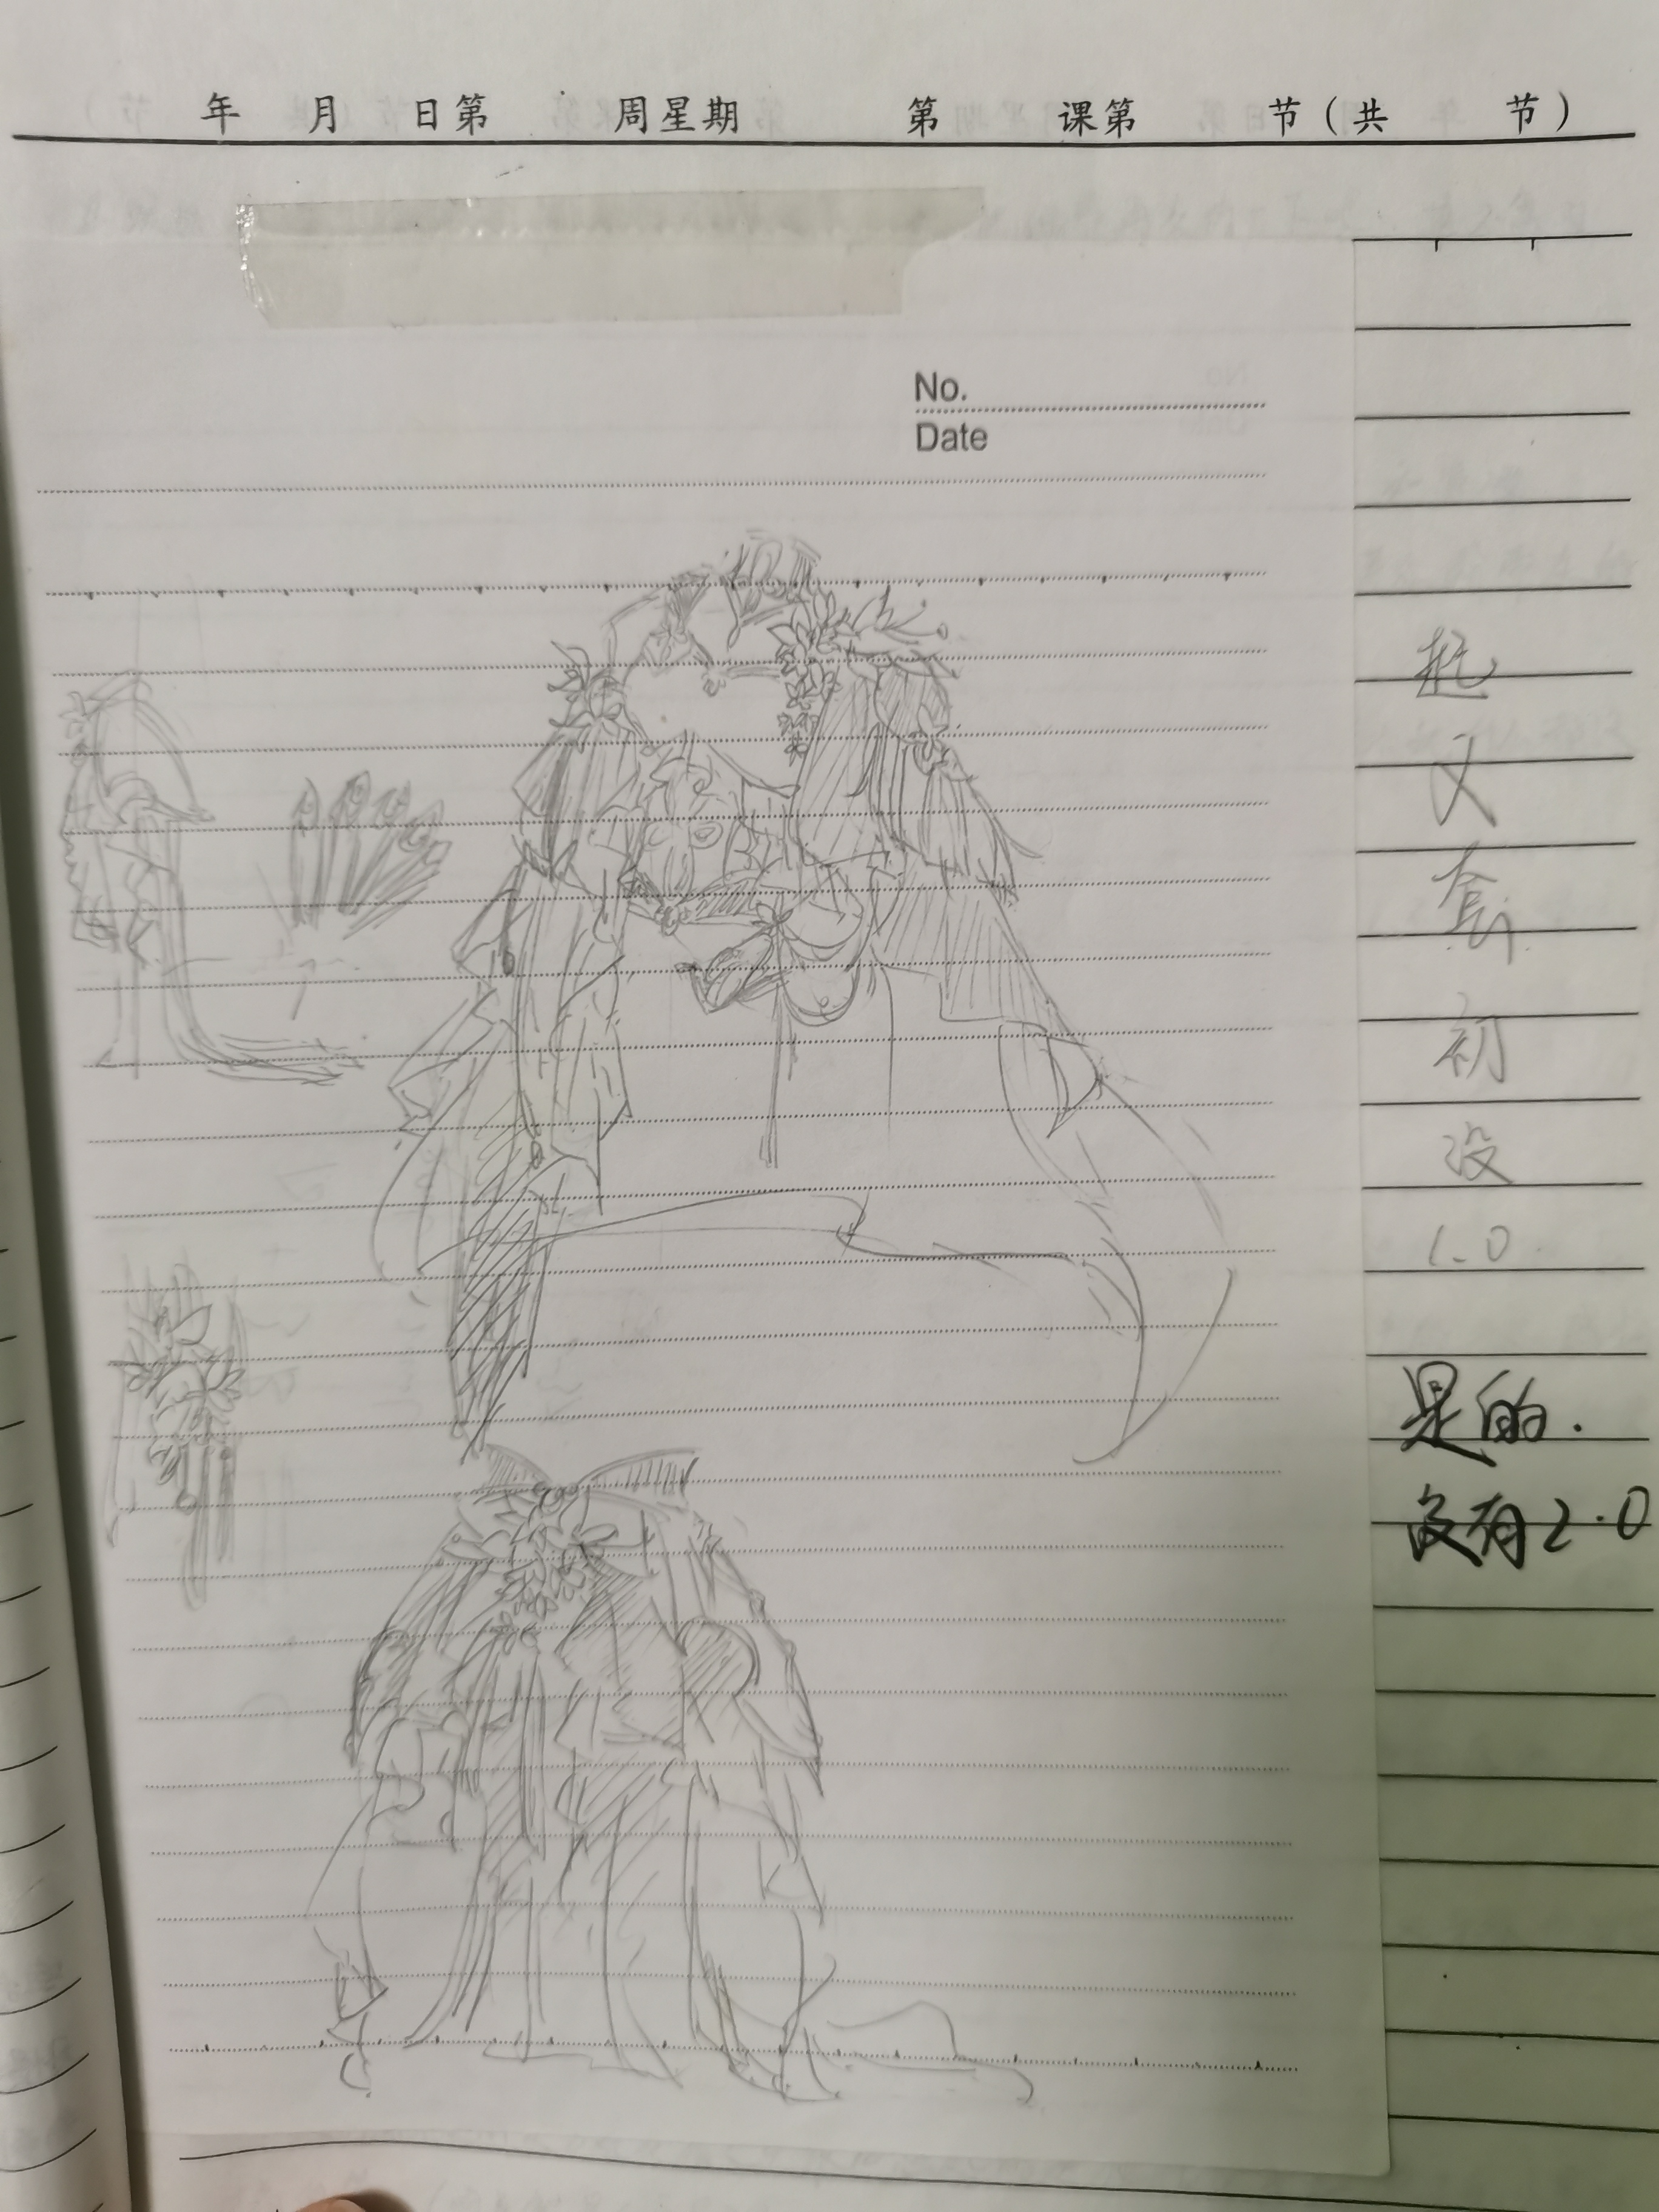 年 月 日第 周星期 第 课第 节(共 节)
No.
Date
初
设
1.0
是的.
没有2.0